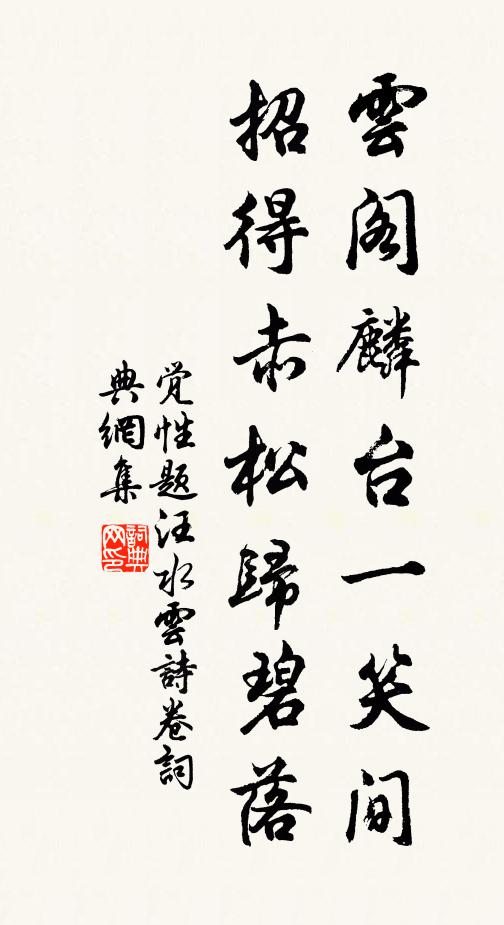 雲阁麟台一笑间
招得赤松歸碧落
觉性题汪水雲詩卷詞
典網集
詞典
网印